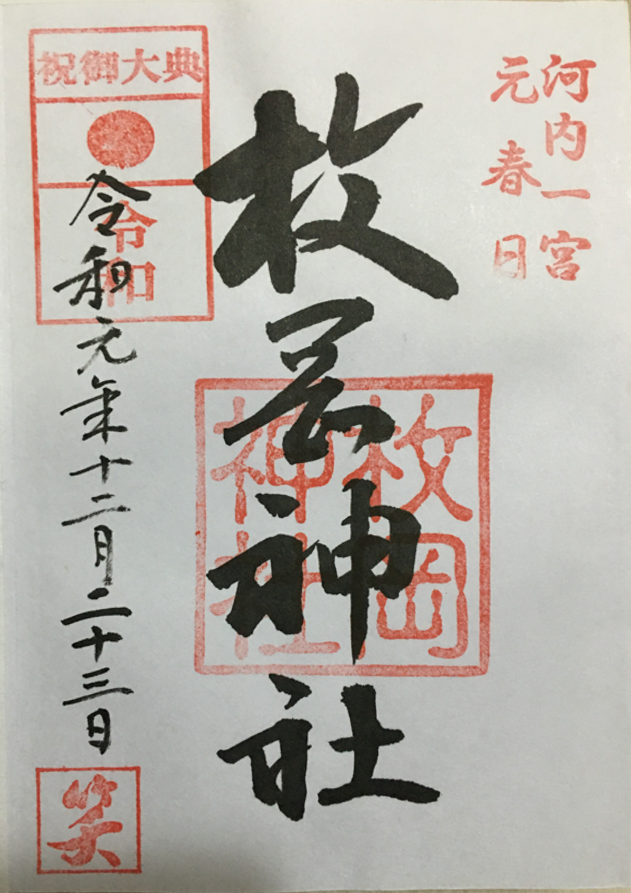 河内一宮
元春日
枚岡神社
枚岡
神社
祝御大典
令和
令和元年十二月二十三日
笑